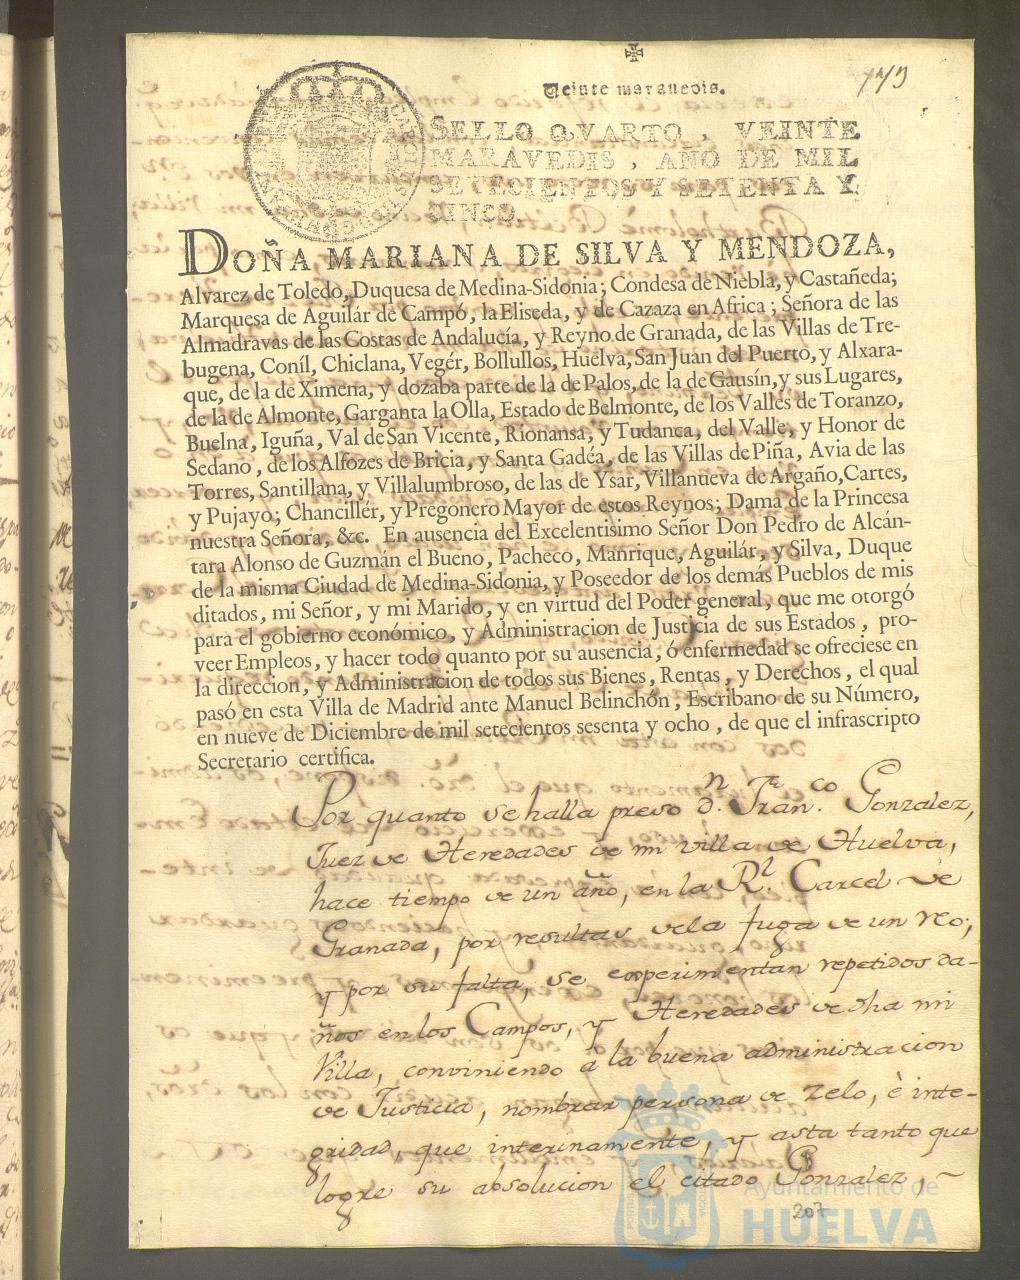 Veinte maravedis.
SELLO QVARTO, VEINTE
MARAVEDIS, AÑO DE MIL
SETECIENTOS Y SETENTA Y
CINCO.
DOÑA MARIANA DE SILVA Y MENDOZA,
Alvarez de Toledo, Duquesa de Medina-Sidonia; Condesa de Niebla, y Castañeda;
Marquesa de Aguilár de Campó, la Eliseda, y de Cazaza en Africa; Señora de las
Almadravas de las Costas de Andalucía, y Reyno de Granada, de las Villas de Tre-
bugena, Coníl, Chiclana, Vegér, Bollullos, Huelva, San Juan del Puerto, y Alxara-
que, de la de Ximena, y dozaba parte de la de Palos, de la de Gausín, y sus Lugares,
de la de Almonte, Garganta la Olla, Estado de Belmonte, de los Valles de Toranzo,
Buelna, Iguña, Val de San Vicente, Rionansa, y Tudanca, del Valle, y Honor de
Sedano, de los Alfozes de Bricia, y Santa Gadéa, de las Villas de Piña, Avia de las
Torres, Santillana, y Villalumbroso, de las de Ysar, Villanueva de Argaño, Cartes,
y Pujayo; Chancillér, y Pregonero Mayor de estos Reynos; Dama de la Princesa
nuestra Señora, &c. En ausencia del Excelentisimo Señor Don Pedro de Alcán-
tara Alonso de Guzmán el Bueno, Pacheco, Manrique, Aguilár, y Silva, Duque
de la misma Ciudad de Medina-Sidonia, y Poseedor de los demás Pueblos de mis
ditados, mi Señor, y mi Marido, y en virtud del Poder general, que me otorgó
para el gobierno económico, y Administracion de Justicia de sus Estados, pro-
veer Empleos, y hacer todo quanto por su ausencia, ó enfermedad se ofreciese en
la direccion, y Administracion de todos sus Bienes, Rentas, y Derechos, el qual
pasó en esta Villa de Madrid ante Manuel Belinchón, Escribano de su Número,
en nueve de Diciembre de mil setecientos sesenta y ocho, de que el infrascripto
Secretario certifica.
Por quanto se halla preso dn. Franco. Gonzalez,
Juez de Heredades de mi villa de Huelva,
hace tiempo de un año, en la Rl. Carcel de
Granada, por resultas de la fuga de un reo,
y por su falta, se experimentan repetidos da-
ños en los Campos, y Heredades de dha mi
Villa, conviniendo á la buena administracion
de Justicia, nombrar persona de zelo, è inte-
gridad, que interinamente, y asta tanto que
logre su absolucion el citado Gonzalez,
207
Ayuntamiento de
HUELVA